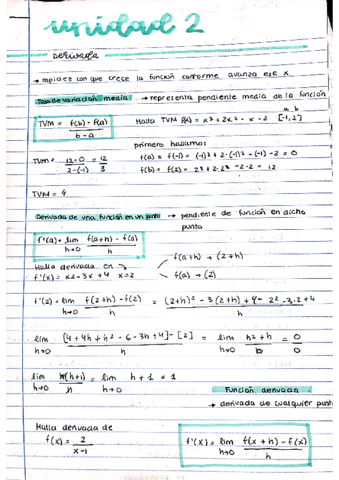 unidad 2
DERIVADA
→ rapidez con que crece la función conforme avanza eje x
Tasa de variación media → representa pendiente media de la función
TVM = f(b) - f(a) / b - a
Halla TVM f(x) = x³ + 2x² - x - 2 [-1, 2]
a b
primero hallamos
f(a) = f(-1) = (-1)³ + 2·(-1)² - (-1) - 2 = 0
f(b) = f(2) = 2³ + 2·2² - 2 - 2 = 12
TVM = 12 - 0 / 2 - (-1) = 12 / 3
TVM = 4
Derivada de una función en un punto → pendiente de función en dicho
punto
f'(a) = lim h→0 f(a+h) - f(a) / h
Halla derivada en
f'(x) = x2 - 3x + 4 x=2
f(a+h) → (2+h)
f(a) → (2)
f'(2) = lim h→0 f(2+h) - f(2) / h = (2+h)² - 3(2+h) + 4 - 2² - 3.2 + 4 / h
lim h→0 [4 + 4h + h² - 6 - 3h + 4] - [2] / h = lim h→0 h² + h / h = 0 / 0
lim h→0 h(h+1) / h = lim h→0 h + 1 = 1
Función derivada
→ derivada de cualquier punto
Halla derivada de
f(x) = 2 / x-1
f'(x) = lim h→0 f(x+h) - f(x) / h